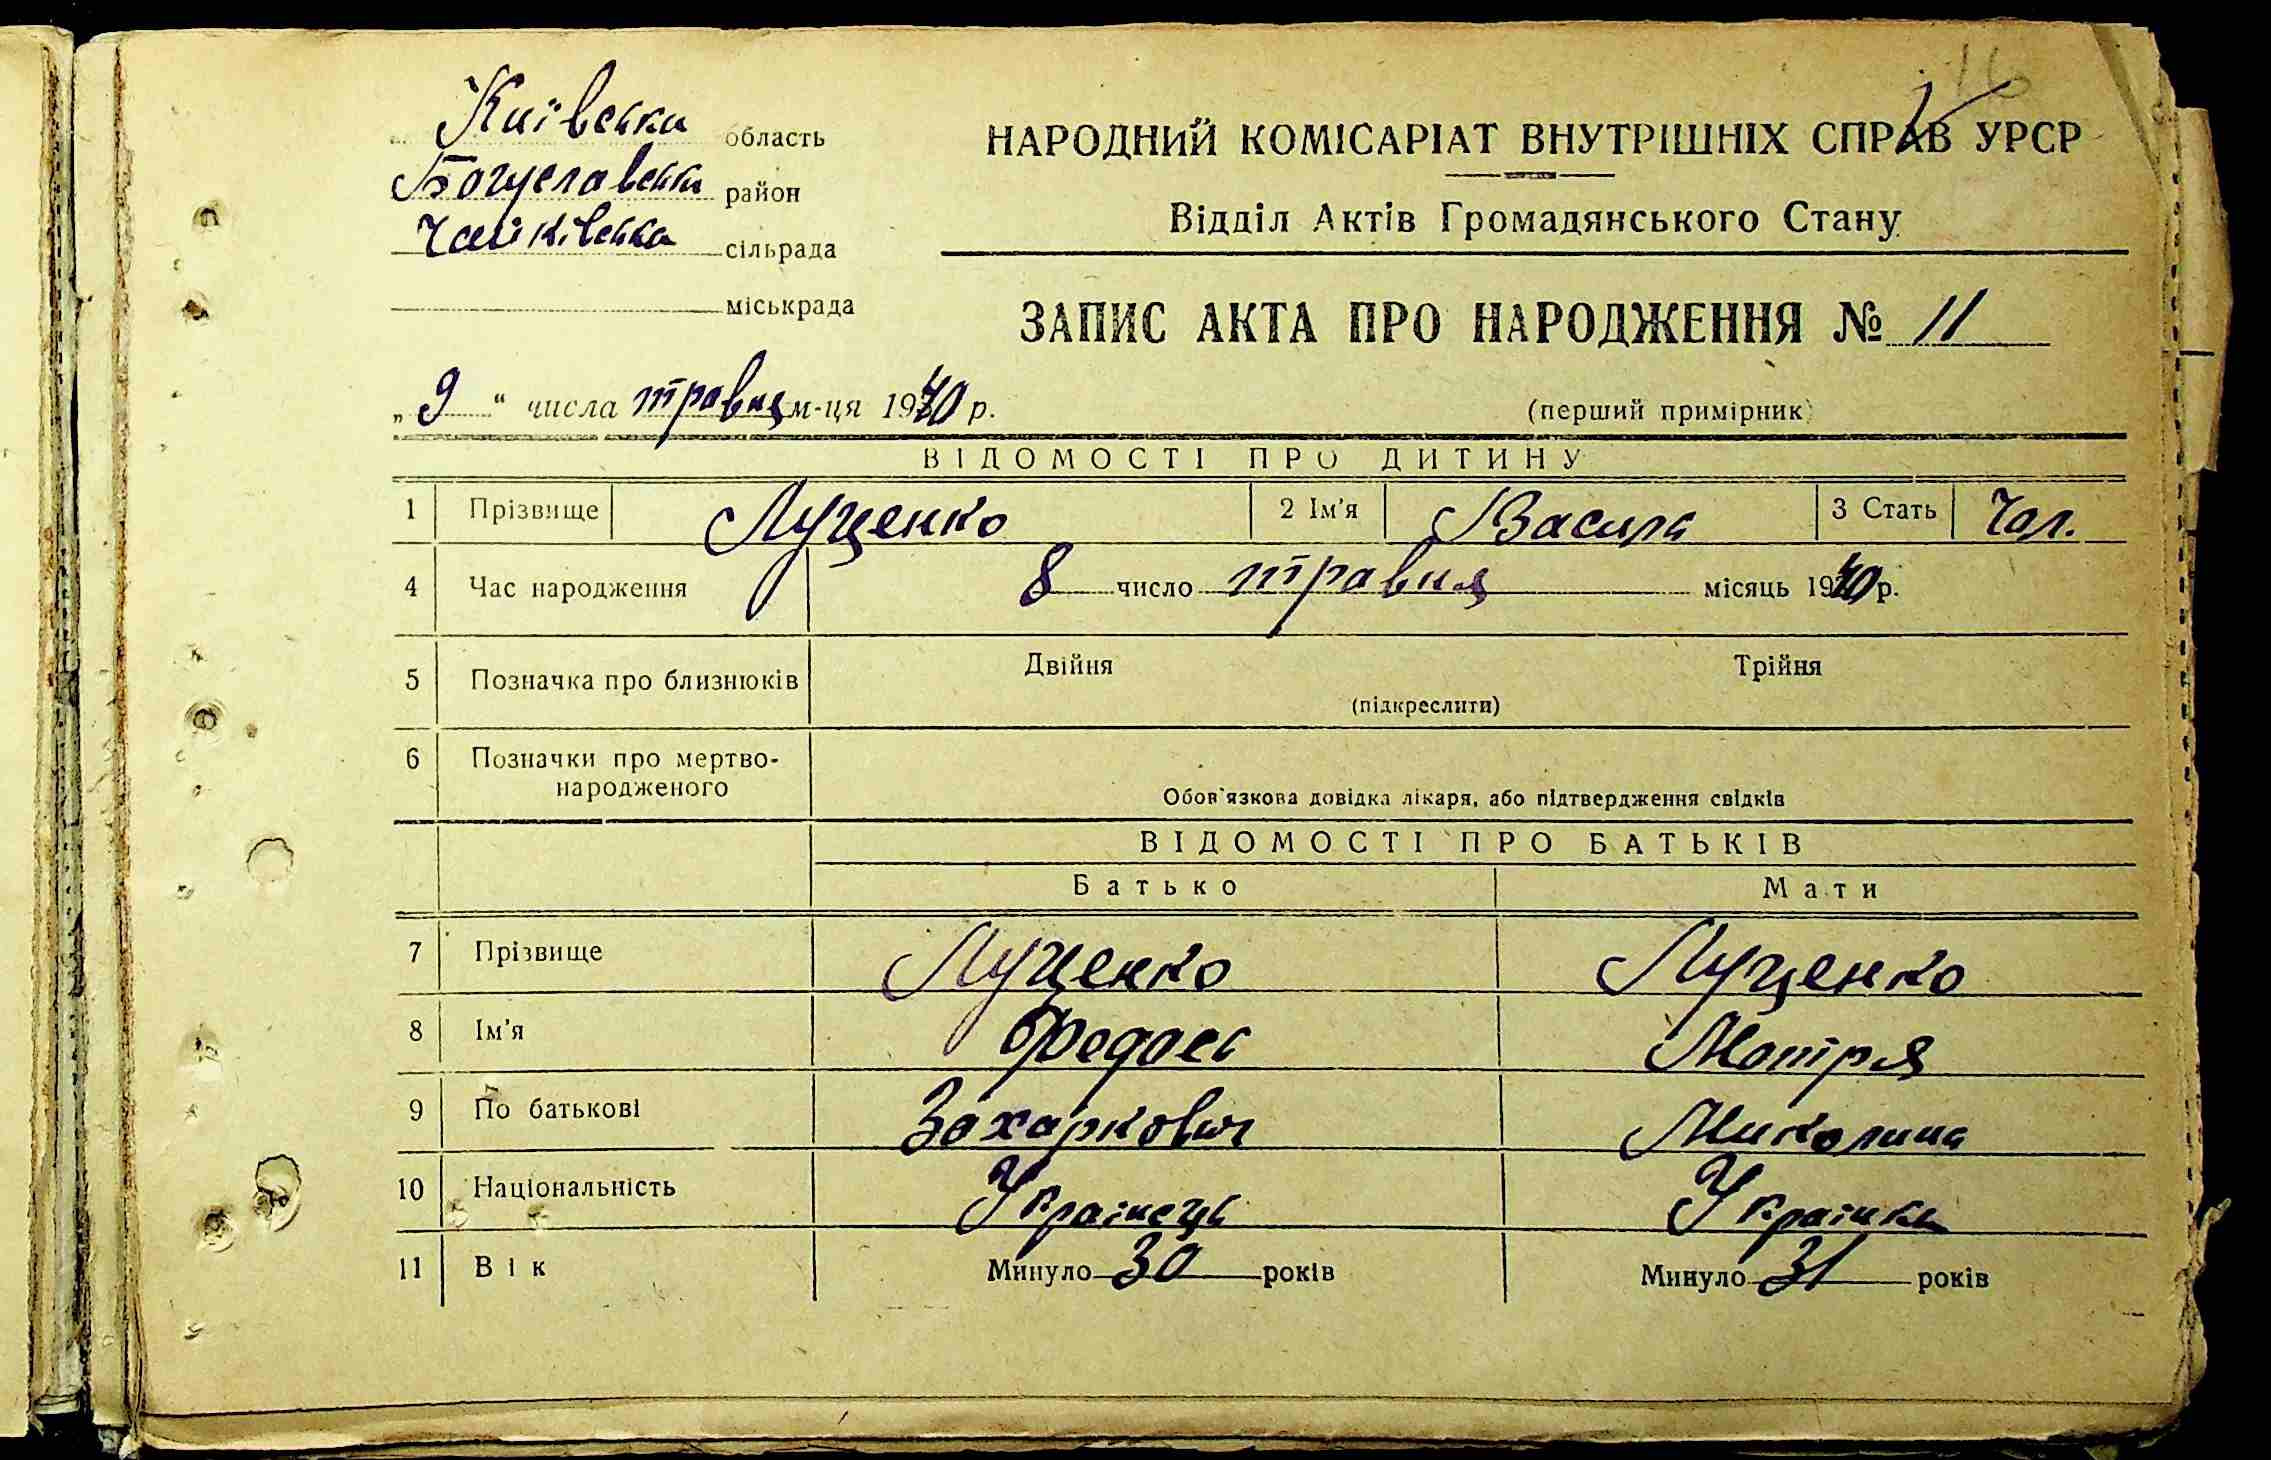 16
Київська область
Богуславськ район
Чайківська сільрада
міськрада
НАРОДНИЙ КОМІСАРІАТ ВНУТРІШНІХ СПРАВ УРСР
Відділ Актів Громадянського Стану
ЗАПИС АКТА ПРО НАРОДЖЕННЯ № 11
„ 9 “ числа травня м-ця 1940 р.
(перший примірник)
ВІДОМОСТІ ПРО ДИТИНУ
1 Прізвище Луценко 2 Ім'я Василь 3 Стать Чол.
4 Час народження 8 число травня місяць 1940 р.
5 Позначка про близнюків Двійня Трійня
(підкреслити)
6 Позначки про мертво-
народженого
Обов'язкова довідка лікаря, або підтвердження свідків
ВІДОМОСТІ ПРО БАТЬКІВ
Батько Мати
7 Прізвище Луценко Луценко
8 Ім'я Федось Мотря
9 По батькові Захаркович Миколина
10 Національність Українець Українка
11 Вік Минуло 30 років Минуло 31 років